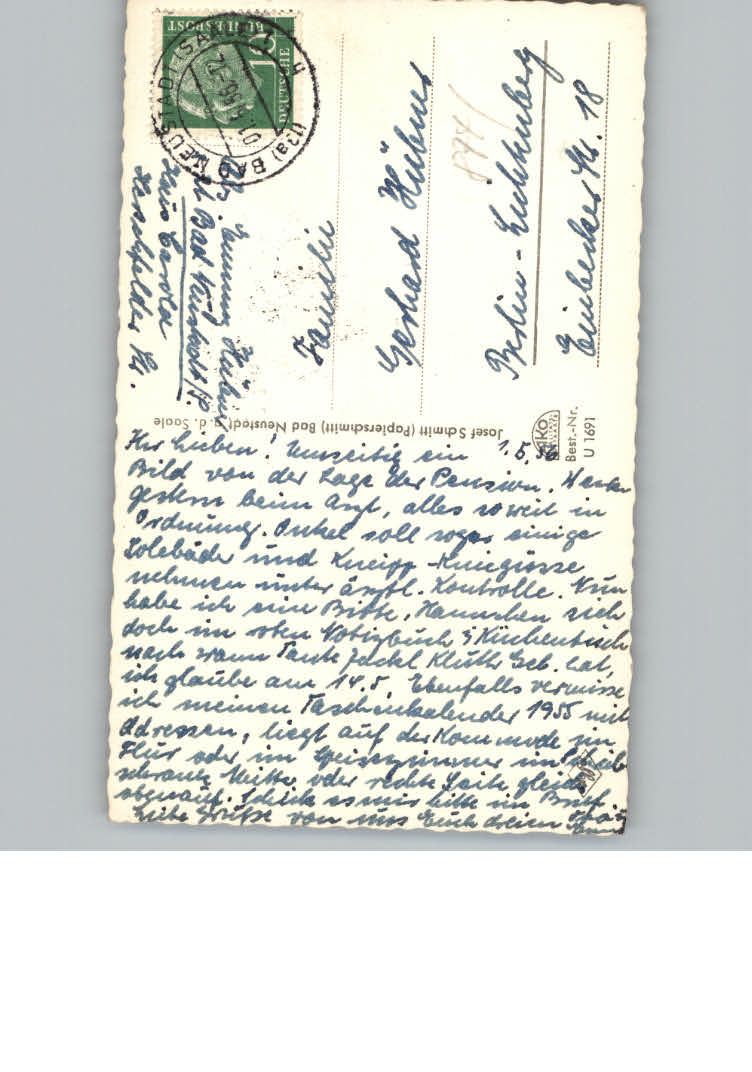 Ihr Lieben! Umseitig ein 1.5.56
Bild von der Lage der Pension. Waren
gestern beim Arzt, alles soweit in
Ordnung. Onkel soll sogar einige
Solebäder und Kneipp-Kniegüsse
nehmen unter ärztl. Kontrolle. Nun
habe ich eine Bitte, Hannchen sieh
doch im roten Notizbuch i. Küchentisch
nach wann Tante Jackl Kluth Geb. hat,
ich glaube am 14.5. Ebenfalls vermisse
ich meinen Taschenkalender 1955 mit
Adressen, liegt auf der Kommode im
Flur oder im Speisezimmer im
schrank Mitte oder rechte Seite gleich
obenauf. Schicke es mir bitte im Brief.
Liebe Grüße von uns Euch dreien
Josef Schmitt (Papierschmitt) Bad Neustadt a. d. Saale
Best.-Nr.
U 1691
DEUTSCHE
BUNDESPOST
10
(13a) BAD NEUSTADT (SAALE) 1
Abs. Emmy Hübner
Bad Neustadt/S.
Haus
Hersfelder Str.
Familie
Gerhard Hübner
Berlin-Lichtenberg
Einbecker Str. 18